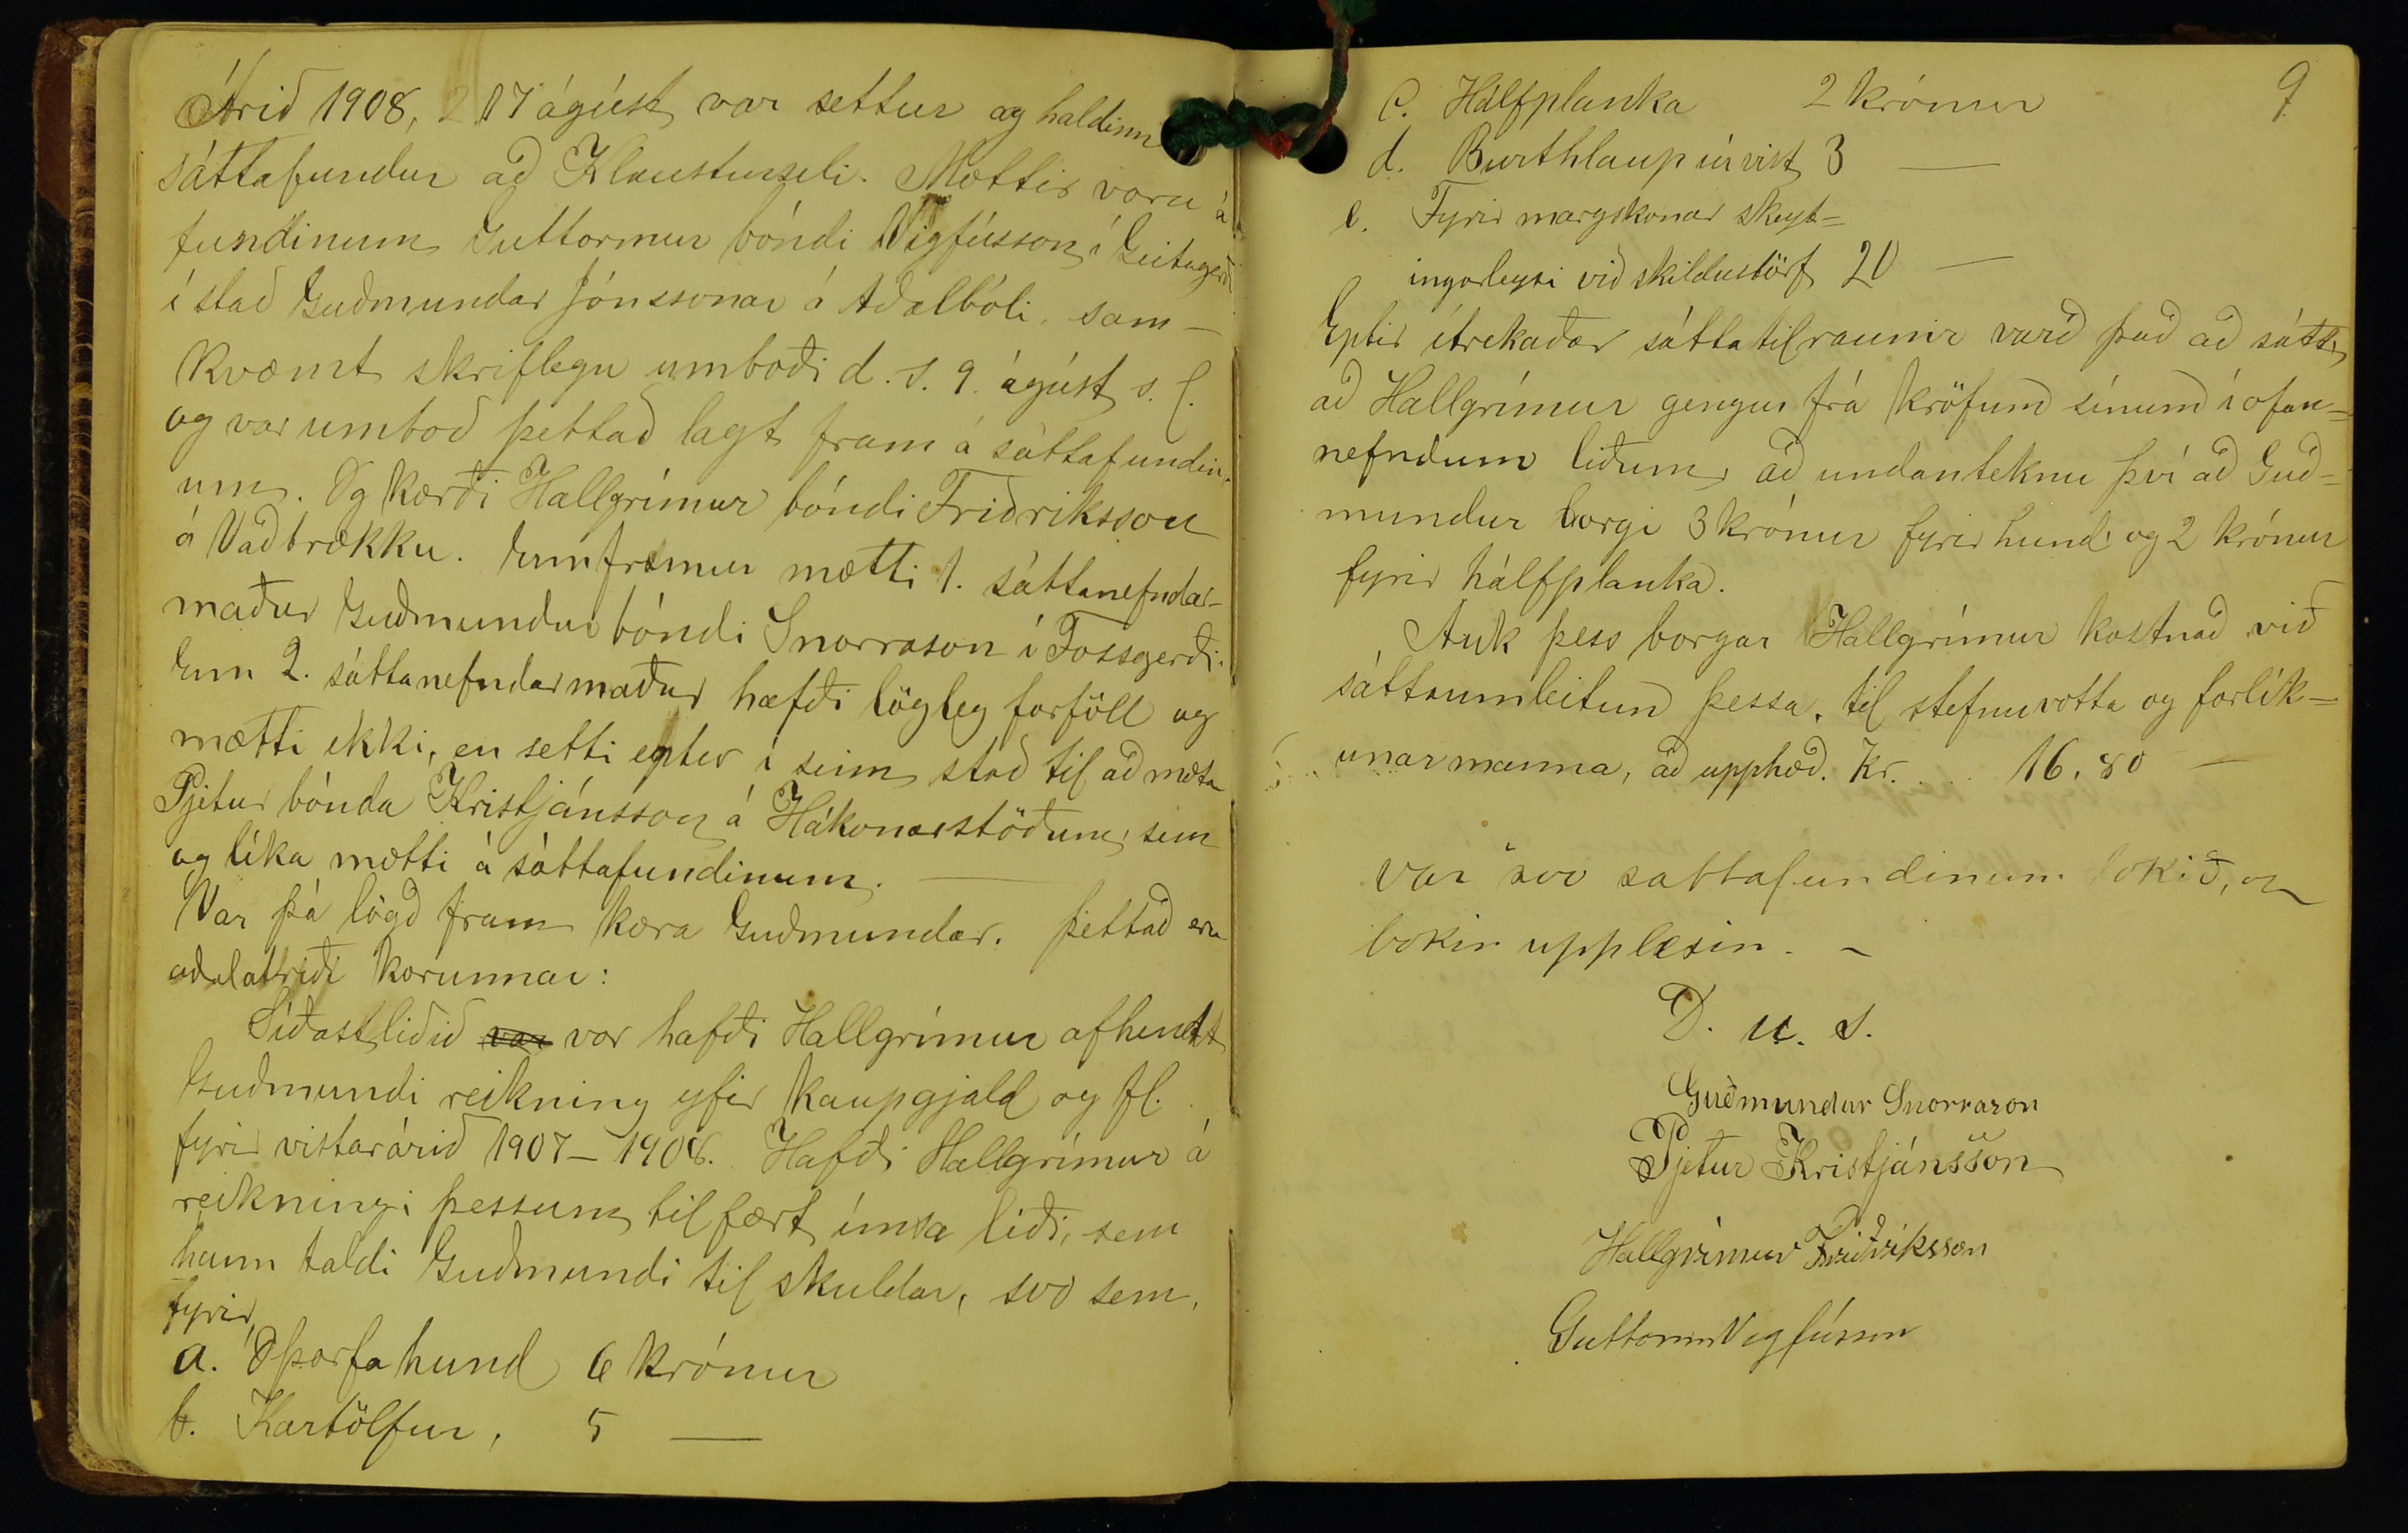 Árið 1908, 17 ágúst var settur og haldinn
sáttafundur að Klausturseli. Mættir voru á
fundinum Guttormur bóndi Vigfússon í Geitagerði
í stað Guðmundar Jónssonar á Aðalbóli, sam-
kvæmt skriflegu umboði d. s. 9. ágúst s. l.
og var umboð þettað lagt fram á sáttafundin-
um. Og kærði Hallgrímur bóndi Friðriksson
á Vaðbrekku. Ennfremur mætti 1. sáttanefndar-
maður Guðmundur bóndi Snorrason í Fossgerði.
Enn 2. sáttanefndarmaður hafði lögleg forföll og
mætti ekki, en setti eptir í sinn stað til að mæta
Pjetur bónda Kristjánsson á Hákonarstöðum, sem
og líka mætti á sáttafundinum. —
Var þá lögð fram kæra Guðmundar. Þettað eru
aðalatriði kærunnar:
Síðastliðið var vor hafði Hallgrímur afhendt
Guðmundi reikning yfir kaupgjald og fl.
fyrir vistarárið 1907-1908. Hafði Hallgrímur á
reikningi þessum tilfært ímsa liði, sem
hann taldi Guðmundi til skuldar, svo sem,
fyrir,
a. Óþarfa hund 6 krónur
b. Kartölfur, 5 —
9
c. Hálfplanka 2 krónur
d. Burthlaup úr vist 3 —
e. Fyrir margskonar skeyt=
ingarleysi við skildustörf 20 —
Eptir ítrekaðar sáttatilraunir varð það að sátt,
að Hallgrímur gengur frá kröfum sínum í ofan=
nefndum liðum, að undanteknu því að Guð=
mundur borgi 3 krónur fyrir hund og 2 krónur
fyrir hálfplanka.
Auk þess borgar Hallgrímur kostnað við
sáttaumleitun þessa, til stefnuvotta og forlík=
unarmanna, að upphæð. Kr. . . 16,80 —
Var svo sattafundinum lokið, og
bokin upplesin. -
D. u. s.
Guðmundur Snorrason
Pjetur Kristjánsson
Hallgrímur Friðriksson
Guttormr Vigfússon